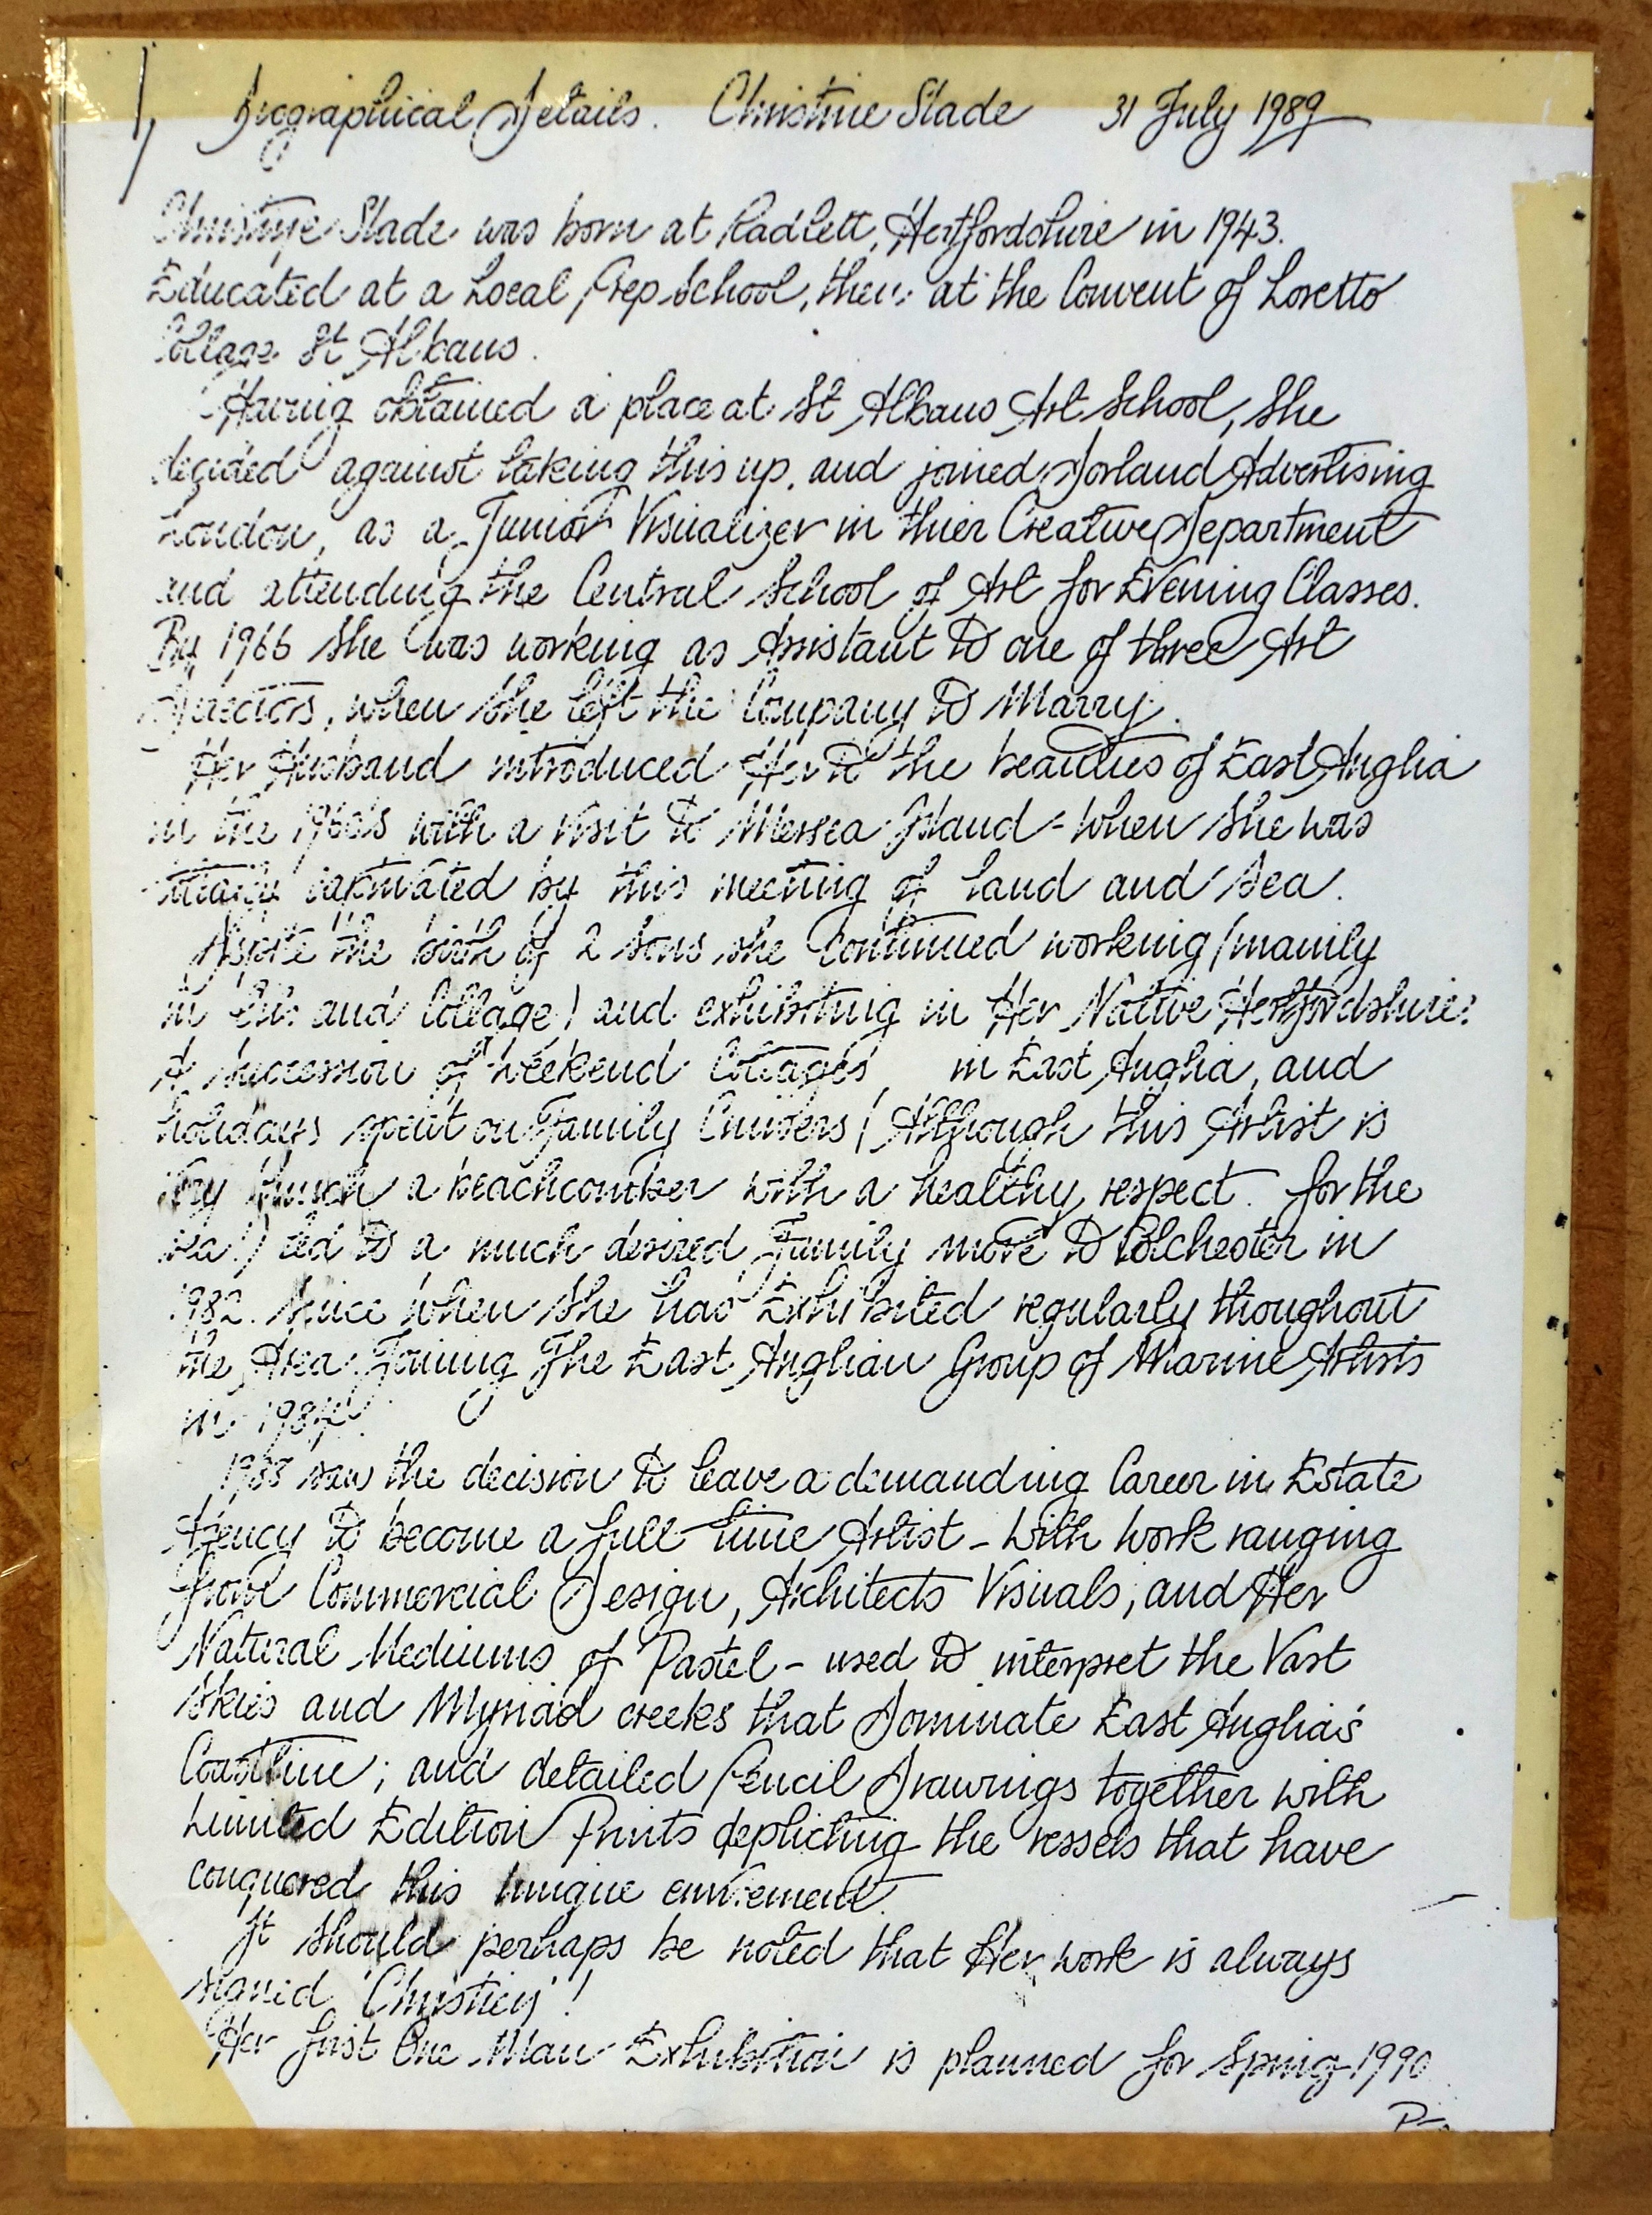 1, Biographical Details. Christine Slade 31 July 1989
Christine Slade was born at Radlett, Hertfordshire in 1943.
Educated at a Local Prep School, then at the Convent of Loretto
College St Albans.
Having obtained a place at St Albans Art School, She
decided against taking this up, and joined Dorland Advertising
London, as a Junior Visualizer in thier Creative Department
and attending the Central School of Art for Evening Classes.
By 1966 She was working as Assistant to one of three Art
Directors, when She left the Company to Marry.
Her Husband introduced Her to the beauties of East Anglia
in the 1960's with a visit to Mersea Island - When She was
captivated by this meeting of land and Sea.
Dispite the birth of 2 Sons she Continued working (mainly
in and Collage) and exhibiting in Her Native Hertfordshire.
A Succession of Weekend Cottages in East Anglia, and
holidays spent on Family Cruisers (Although this Artist is
Very Much a beachcomber with a healthy respect for the
Sea!) led to a much desired Family move to Colchester in
1982. Since when She has Exhibited regularly thoughout
the Area Joining The East Anglian Group of Marine Artists
in
1988 saw the decision to leave a demanding Career in Estate
Agency to become a full time Artist - With Work ranging
from Commercial Design, Architects Visuals, and Her
Natural Mediums of Pastel - used to interpret the Vast
Skies and Myriad creeks that Dominate East Anglia's
Coastline; and detailed Pencil Drawings together with
Limited Edition Prints depicting the vessels that have
conquered this Unique enviement.
It Should perhaps be noted that Her work is always
signed 'Christies'!
Her first One Man Exhibition is planned for Spring 1990